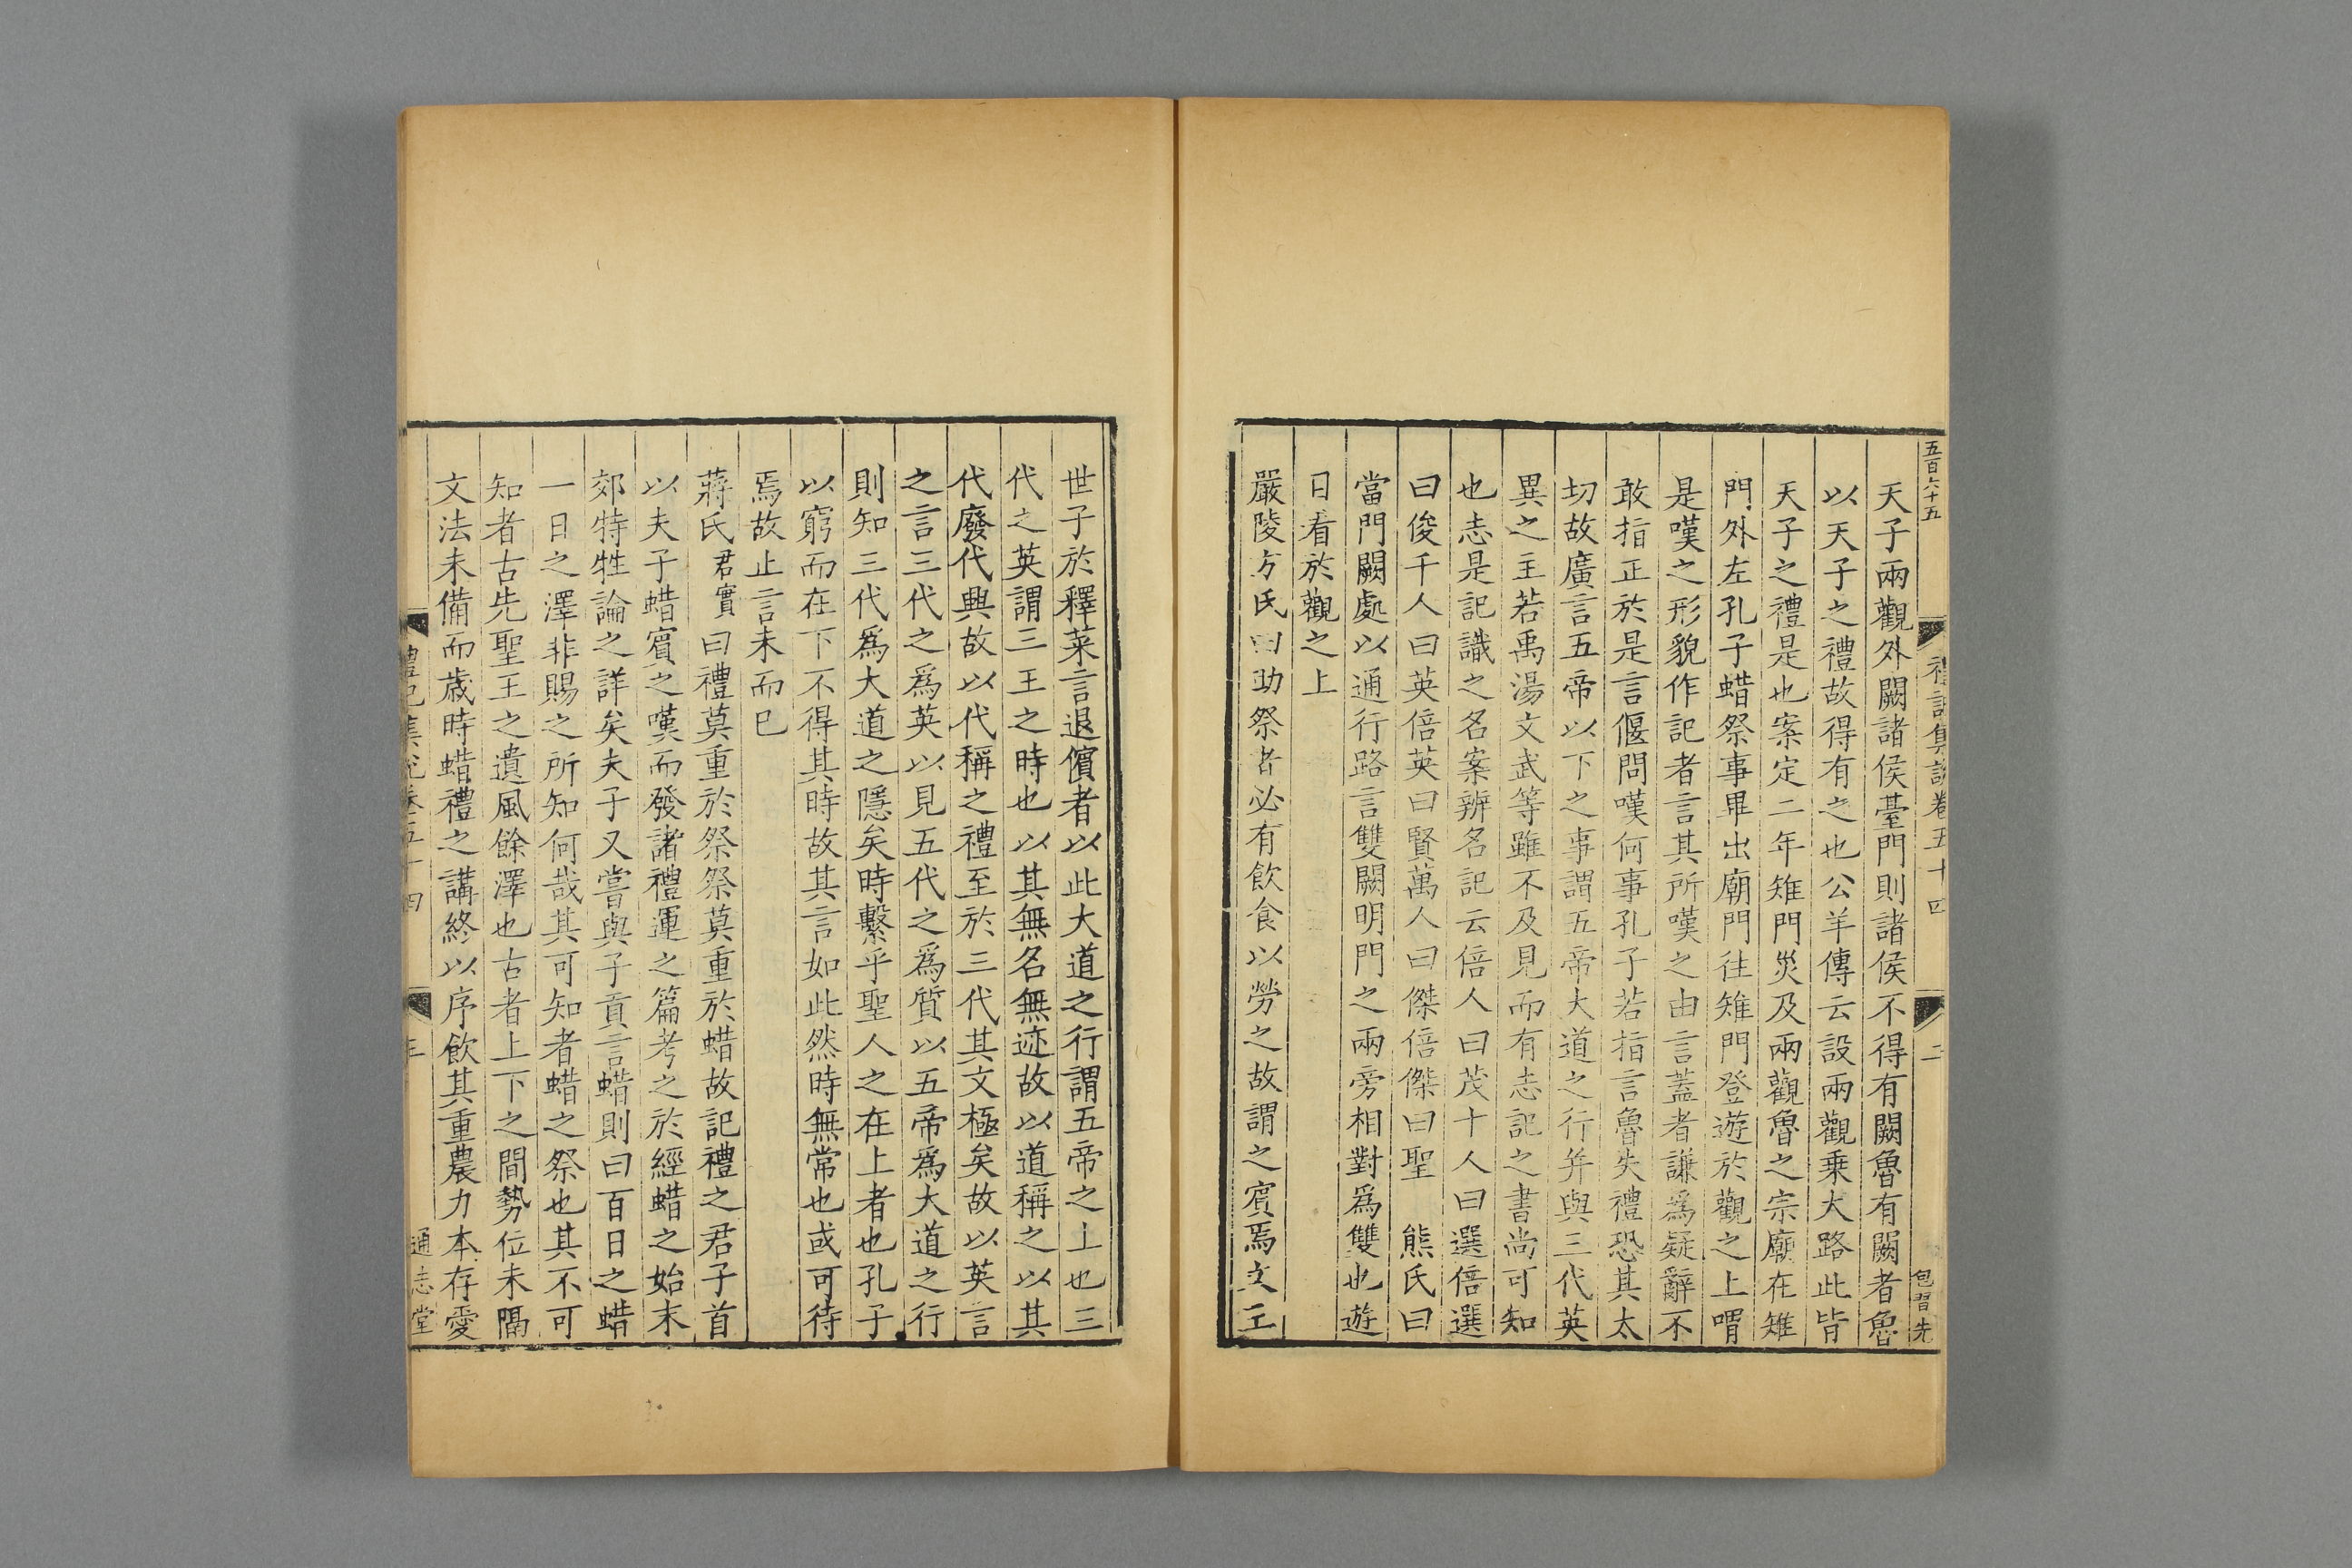 五百六十五
禮記集說卷五十四
二
包習先
天子兩觀外闕諸侯臺門則諸侯不得有闕魯有闕者魯
以天子之禮故得有之也公羊傳云設兩觀乗大路此皆
天子之禮是也案定二年雉門災及兩觀魯之宗廟在雉
門外左孔子蜡祭事畢出廟門徃雉門登遊於觀之上喟
是嘆之形貌作記者言其所嘆之由言蓋者謙爲疑辭不
敢指正於是言偃問嘆何事孔子若指言魯失禮恐其太
切故廣言五帝以下之事謂五帝大道之行并與三代英
異之主若禹湯文武等雖不及見而有志記之書尚可知
也志是記識之名案辨名記云倍人曰茂十人曰選倍選
曰俊千人曰英倍英曰賢萬人曰傑倍傑曰聖 熊氏曰
當門闕處以通行路言雙闕明門之兩旁相對爲雙也遊
日看於觀之上
嚴陵方氏曰助祭者必有飲食以勞之故謂之賓焉文王
世子於釋菜言退儐者以此大道之行謂五帝之上也三
代之英謂三王之時也以其無名無迹故以道稱之以其
代廢代興故以代稱之禮至於三代其文極矣故以英言
之言三代之爲英以見五代之爲質以五帝爲大道之行
則知三代爲大道之隱矣時繫乎聖人之在上者也孔子
以窮而在下不得其時故其言如此然時無常也或可待
焉故止言未而已
蔣氏君實曰禮莫重於祭祭莫重於蜡故記禮之君子首
以夫子蜡賓之嘆而發諸禮運之篇考之於經蜡之始末
郊特牲論之詳矣夫子又嘗與子貢言蜡則曰百日之蜡
一日之澤非賜之所知何哉其可知者蜡之祭也其不可
知者古先聖王之遺風餘澤也古者上下之間勢位未隔
文法未備而歳時蜡禮之講終以序飲其重農力本存愛
禮記集說卷五十四
三
通志堂